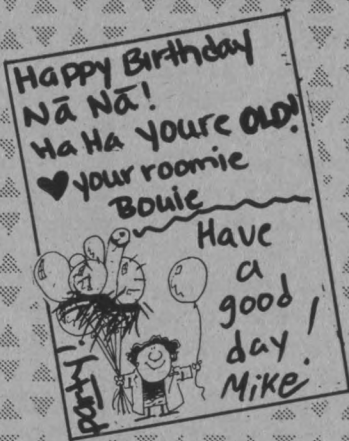 Happy Birthday
Nā Nā!
Ha Ha youre OLD!
♥ your roomie
Bouie
Have
a
good
day!
Mike
party!